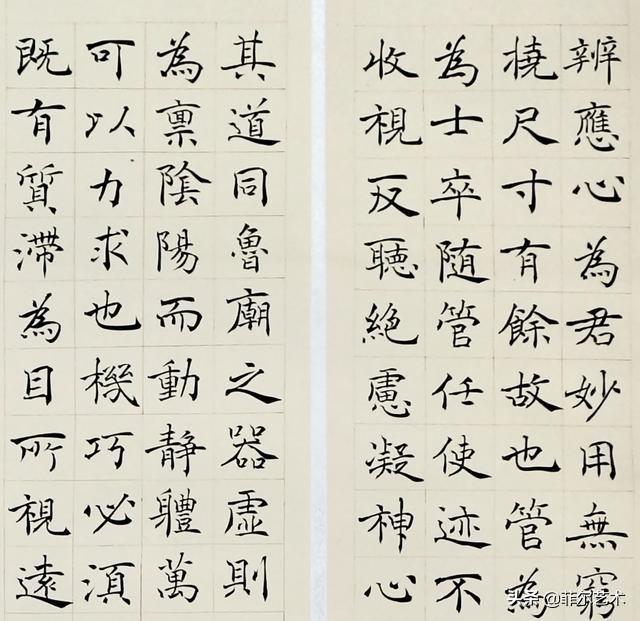 辨應心為君妙用無窮
橈尺寸有餘故也管為
為士卒随管任使迹不
收視反聽絕慮凝神心
其道同魯廟之器虛則
為稟陰陽而動靜體萬
可以力求也機巧必須
既有質滯為目所視遠
头条@菲尔艺术